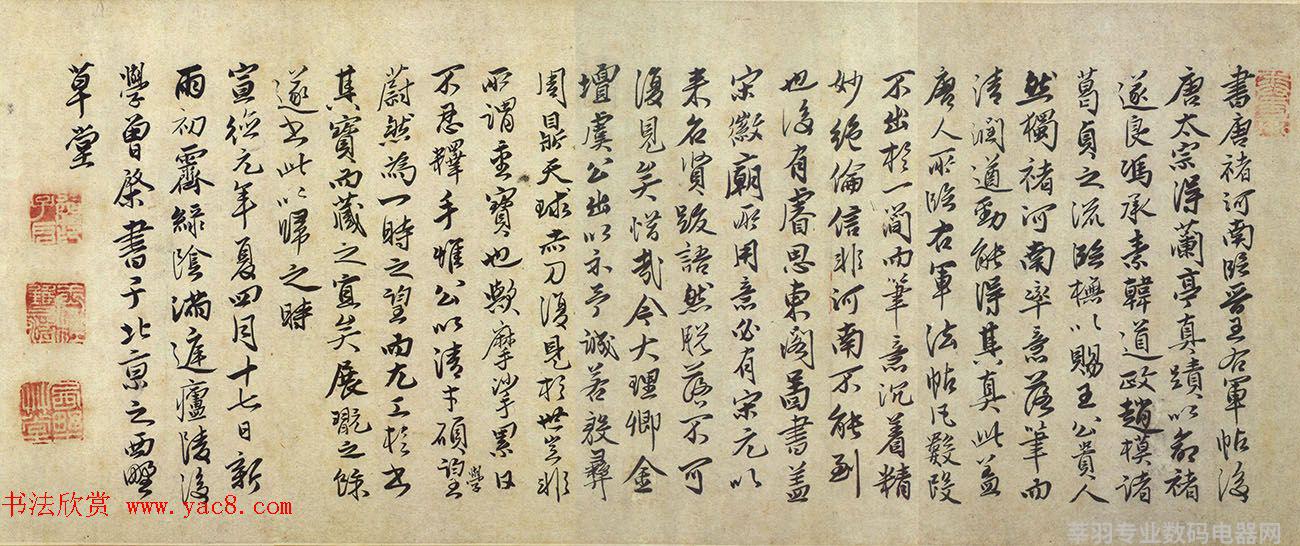 書唐褚河南臨晉王右軍帖後
唐太宗得蘭亭真蹟以命褚
遂良馮承素韓道政趙模諸
葛貞之流臨橅以賜王公貴人
然獨褚河南率意落筆而
清潤遒勁能得其真此蓋
唐人所臨右軍法帖凡數段
不出於一簡而筆意沉着精
妙絶倫信非河南不能到
也後有睿思東閣啚書蓋
宋徽廟所用意必有宋元以
来名賢跋語然脫落不可
復見矣惜哉今大理卿金
壇虞公出以示予誠若殷彝
周鼎天球赤刀復見於世豈非
所謂重寶也歟摩挲累日
不忍釋手惟公以清才碩學望
蔚然為一時之望而尤工於書
其寶而藏之宜矣展翫之餘
遂書此以歸之時
宣德元年夏四月十七日新
雨初霽緑陰滿庭廬陵後
學曾棨書于北京之西墅
草堂
书法欣赏 www.yac8.com
莘羽专业数码电器网